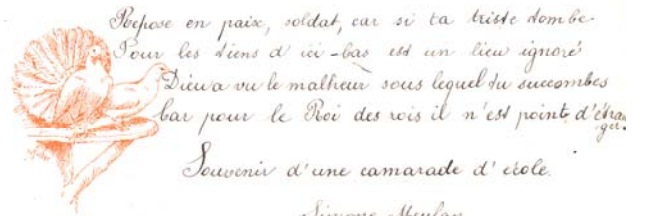 Repose en paix, soldat, car si ta triste tombe
Pour les tiens d'ici-bas est un lieu ignoré
Dieu a vu le malheur sous lequel tu succombes
Car pour le Roi des rois il n'est point d'étran
ger.
Souvenir d'une camarade d'école.
Simone Meulan